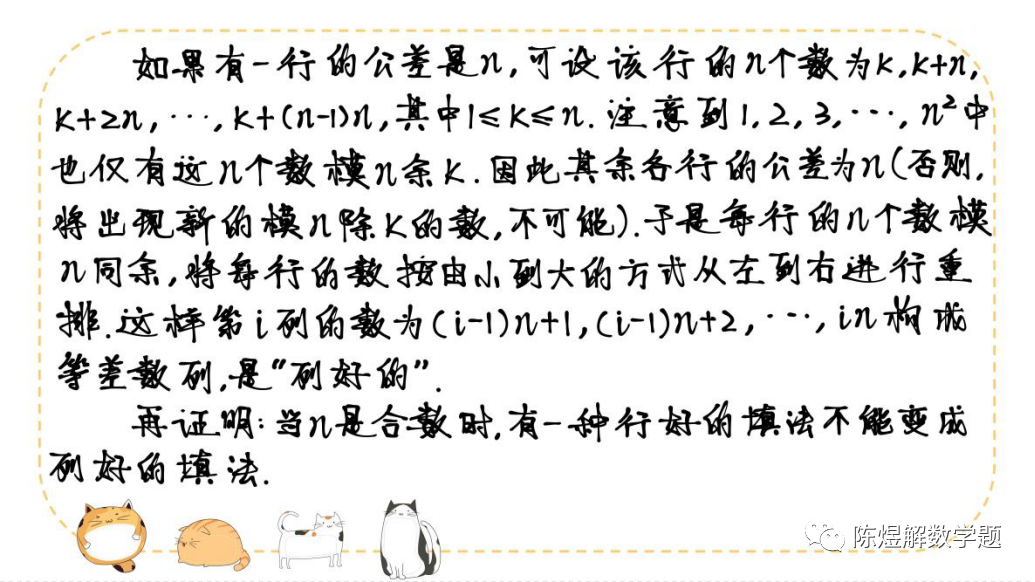 如果有一行的公差是n,可设该行的n个数为k,k+n,
k+2n,···,k+(n-1)n,其中1≤k≤n.注意到1,2,3,···,n²中
也仅有这n个数模n余k.因此其余各行的公差为n(否则,
将出现新的模n除k的数,不可能).于是每行的n个数模
n同余,将每行的数按由小到大的方式从左到右进行重
排.这样第i列的数为(i-1)n+1,(i-1)n+2,···,in构成
等差数列,是“列好的”.
再证明:当n是合数时,有一种行好的填法不能变成
列好的填法.
陈煜解数学题